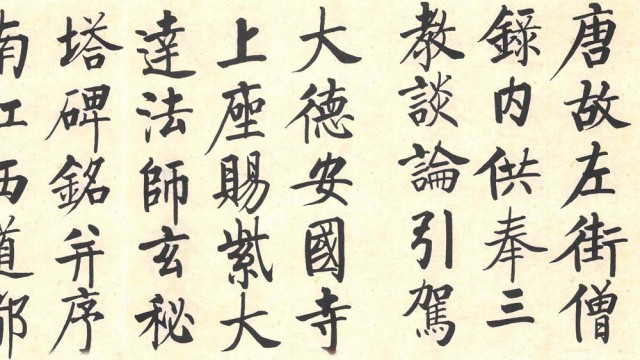 唐故左街僧
錄内供奉三
教談論引駕
大德安國寺
上座賜紫大
達法師玄秘
塔碑銘并序
南江西道都